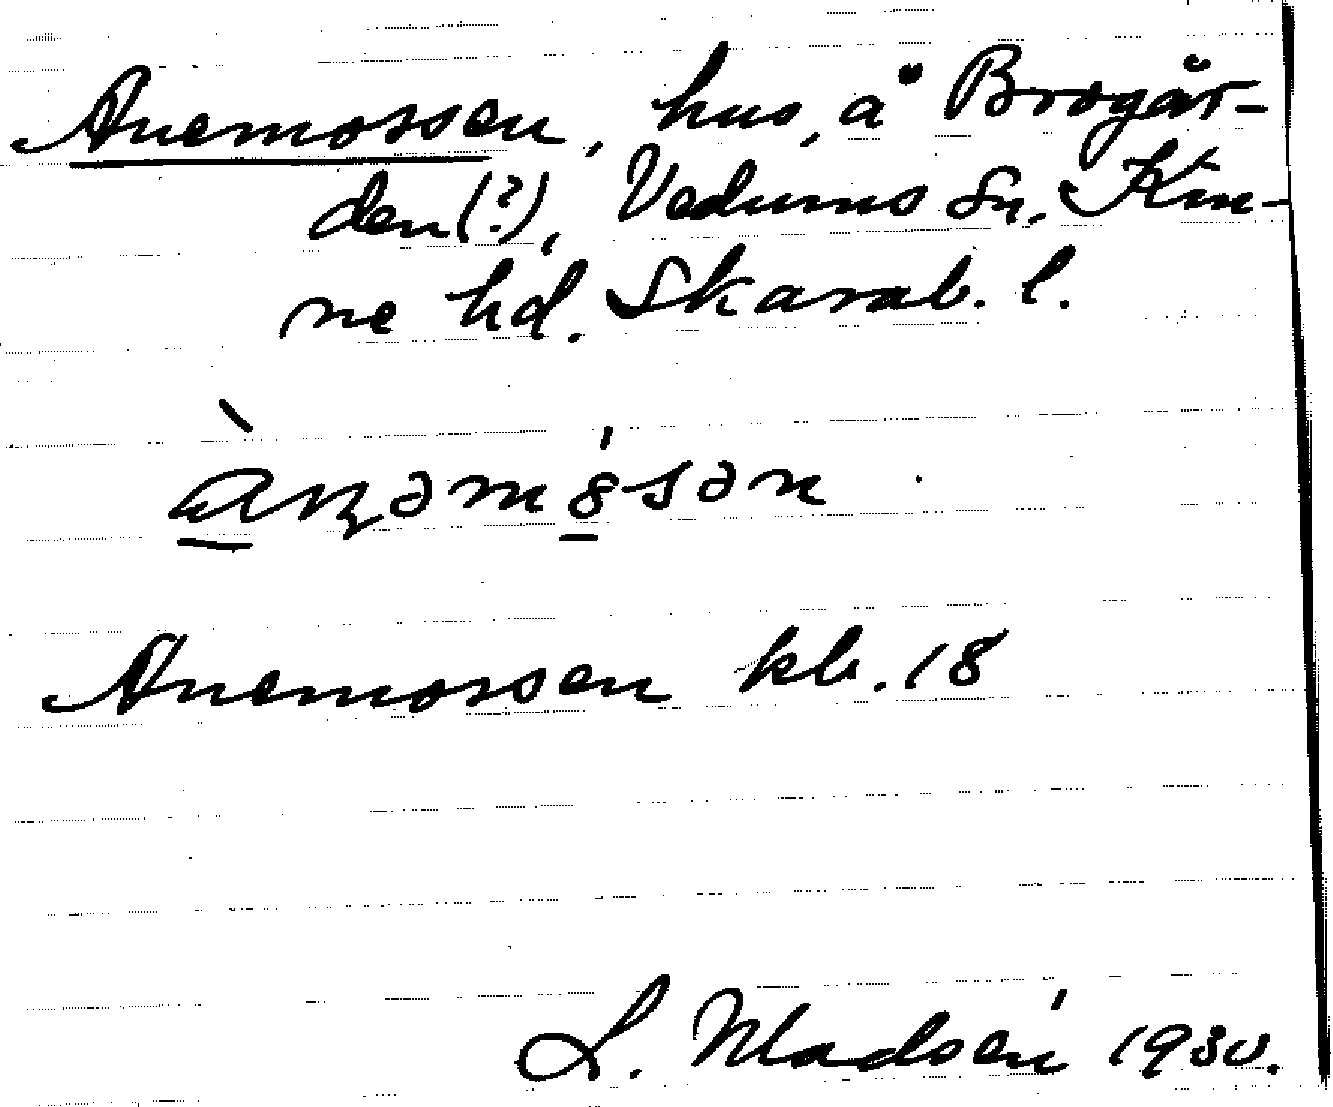 Anemossen, hus, å Brogår-
den (?), Vedums sn, Kin-
ne hd. Skarab. l.
Anemossen kb. 18
L. Madsén 1930.